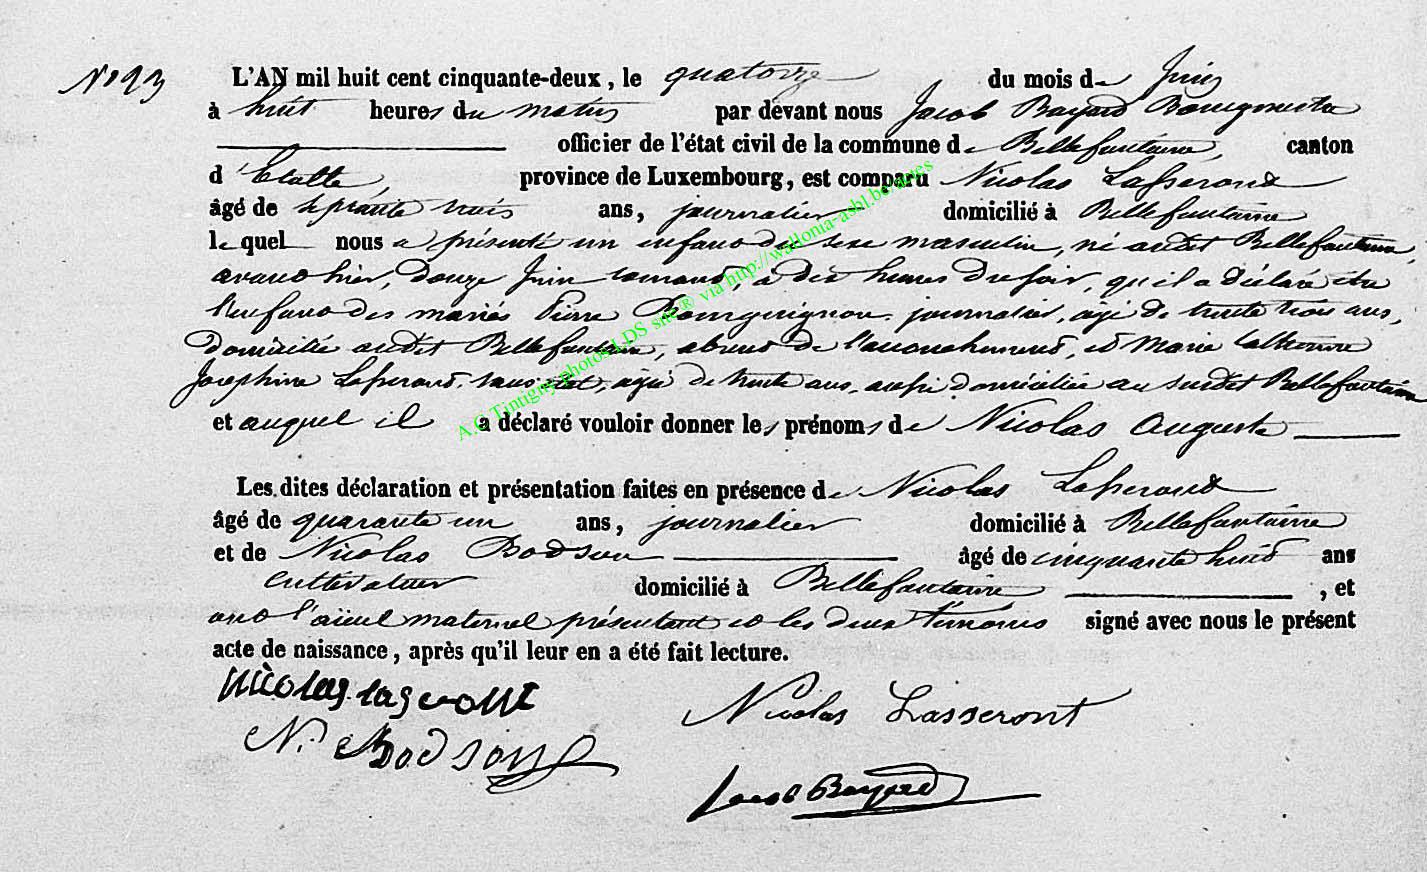 N° 23
L'AN mil huit cent cinquante-deux, le quatorze du mois de Juin
à huit heures du matin par devant nous Jacob Bayard Bourgmestre
officier de l'état civil de la commune de Bellefontaine, canton
d'Etalle, province de Luxembourg, est comparu Nicolas Lasseront
âgé de septante trois ans, journalier domicilié à Bellefontaine
lequel nous a présenté un enfant du sexe masculin, né audit Bellefontaine,
avant hier, douze Juin courant, à dix heures du soir, qu'il a déclaré être
l'enfant des mariés Pierre Bourguignon journalier, âgé de trente trois ans,
domicilié audit Bellefontaine, absent de l'accouchement, et Marie Catherine
Josephine Lasseront, sans état, âgée de trente ans, aussi domiciliée au susdit Bellefontaine
et auquel il a déclaré vouloir donner les prénoms de Nicolas Auguste
Les dites déclaration et présentation faites en présence de Nicolas Lasseront
âgé de quarante un ans, journalier domicilié à Bellefontaine
et de Nicolas Bodson âgé de cinquante huit ans
cultivateur domicilié à Bellefontaine, et
ont l'aïeul maternel présentant et les deux témoins signé avec nous le présent
acte de naissance, après qu'il leur en a été fait lecture.
Nicolas Lasseront
N. Bodson
Nicolas Lasseront
Jacob Bayard
A.C Tintigny photos LDS site ® via http://wallonia-asbl.be/actes